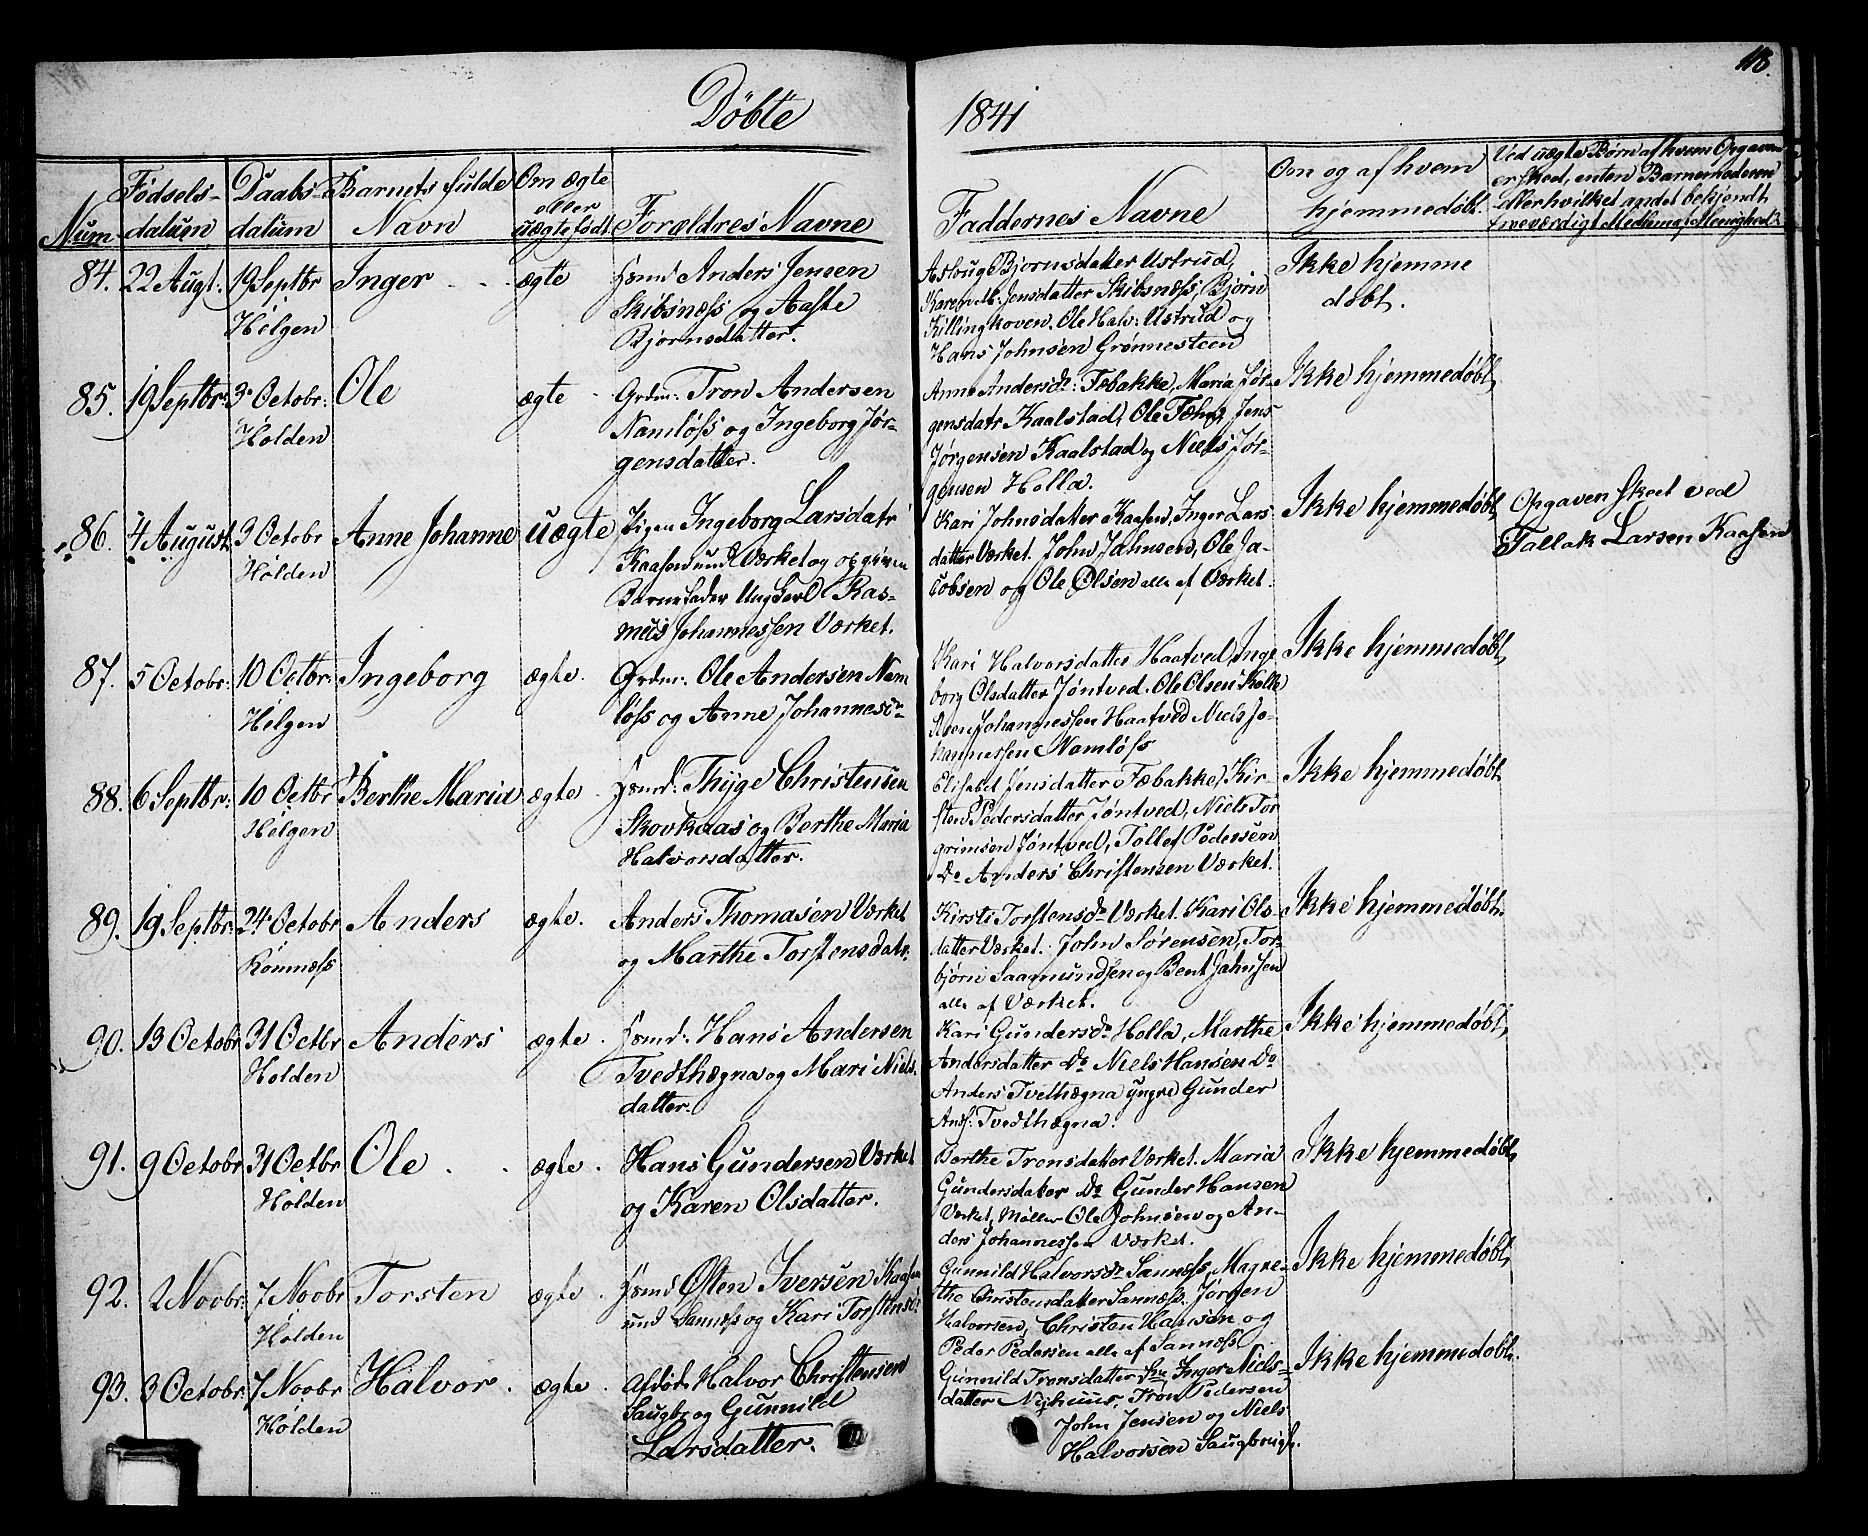 118.
Döbte 1841
Num
Födsels-
datum
Daabs-
datum
Barnets fulde
Navn
Om ægte
eller
uægte født
Forældres Navne
Faddernes Navne
Om og af hvem
hjemmedøbt.
Ved uægte Børn af hvem Opgaven
er skeed, enten Barnemoderen
Eller hvilket andet bekjendt
troeværdigt Medlem af Menighed?
84. 22 Augt. 19 Septbr Inger ægte
Helgen
Hsmd Anders Jensen
Skibsnæss og Aaste
Bjørnsdatter.
Aslaug Bjornsdatter Ustrud,
Karen M: Jensdatter Skibsnæss, Bjørn
Killinghoven, Ole Halv: Ustrud og
Hans Johnsen Grønnesteen
Ikke hjemme
døbt.
85. 19 Septbr: 3 Octobr: Ole ægte
Holden
Grdm: Tron Andersen
Namløss og Ingeborg Jør-
gensdatter.
Anne Andersdr: Fæbakke, Maria Jør-
gensdatr Kaalstad, Ole Fæhn, Jens
Jørgensen Kaalstad og Niels Jør-
gensen Holla.
Ikke hjemmedøbt,
86. 4 August 3 Octobr Anne Johanne uægte
Holden
Pigen Ingeborg Larsdatr
Kaasen und Værket og opgiven
Barnefader Ungkerl Ras-
mus Johannessen Værket.
Kari Johnsdatter Kaasen, Inger Lars
datter Værket. John Jahnsen, Ole Ja-
cobsen og Ole Olsen alle af Værket.
Ikke hjemmedøbt,
Opgaven skeet ved
Tallak Larsen Kaasen
87. 5 Octobr: 10 Octbr: Ingeborg ægte.
Helgen
Grdm: Ole Andersen Nam
løss og Anne Johannesdr
Kari Halvorsdatter Haatved, Inge
borg Olsdatter Jøntved. Ole Olsen
Johannessen Haatved Niels Jo-
hannessen Namløss
Ikke hjemmedøbt,
88. 6 Septbr: 10 Octbr Berthe Maria ægte
Helgen
Hsmd: Thyge Christensen
Skovkaas og Berthe Maria
Halvorsdatter.
Elisabet Jensdatter Fæbakke, Kir-
sten Pedersdatter Jøntved, Niels Tor
grimsen Jøntved, Tollef Pedersen
Do Anders Christensen Værket.
Ikke hjemmedøbt,
89. 19 Septbr: 24 Octobr Anders ægte.
Romnæss
Anders Thomasen Værket
og Marthe Torstensdatr.
Kirsti Torstensdr Værket. Kari Ols-
datter Værket. John Sørensen, Tor-
bjørn Saamundsen og Bent Jahnsen
alle af Værket.
Ikke hjemmedøbt.
90. 13 Octobr 31 Octbr Anders ægte.
Holden
Hsmd: Hans Andersen
Tvedthægna og Mari Niels
datter.
Kari Gundersdr Holla, Marthe
Andersdatter Do Niels Hansen Do
Anders Tvethægna yngre Gunder
Ands: Tvedthægna.
Ikke hjemmedøbt,
91. 9 Octobr 31 Octbr Ole ægte.
Holden
Hans Gundersen Værket
og Karen Olsdatter.
Berthe Tronsdatter Værket. Maria
Gundersdater Do Gunder Hansen
Værket, Møller Ole Johnsen og An-
ders Johannessen Værket.
Ikke hjemmedøbt,
92. 2 Novbr: 7 Novbr Torsten ægte.
Holden
Hsmd Østen Iversen Kaasen
und Sannæss og Kari Torstensdr
Gunnild Halvorsdr Sannæss, Magre-
the Christensdatter Sannæss. Jørgen
Halvorsen, Christen Hansen og
Peder Pedersen alle af Sannæss
Ikke hjemmedøbt,
93. 3 Octobr. 7 Novbr Halvor. ægte.
Holden
Afdøde Halvor Christensen
Saugbr og Gunnild
Larsdatter.
Gunnild Tronsdatter Inger Niels-
datter Nyhuus, Tron Pedersen
John Jensen og Niels
Halvorsen Saugbruget.
Ikke hjemmedøbt.